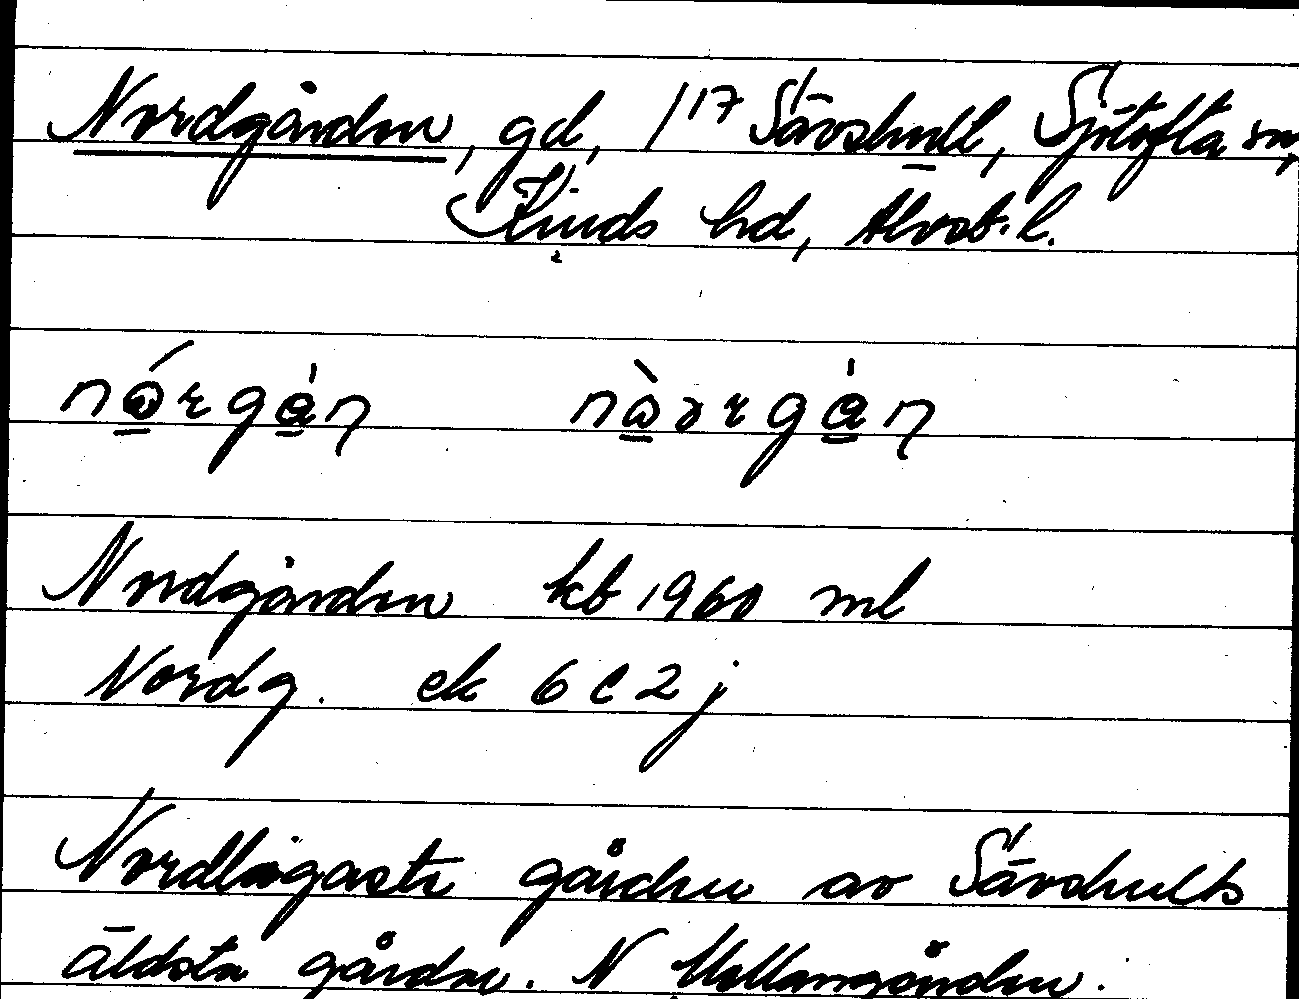 Nordgården, gd, 1/17 Sävshult, Sjötofta sn,
Kinds hd, Älvsb. l.
Nordgården kb 1960 ml
Nordg. ek 6 C 2 j
Nordligaste gården av Sävshults
äldsta gårdar. N Mellangården.